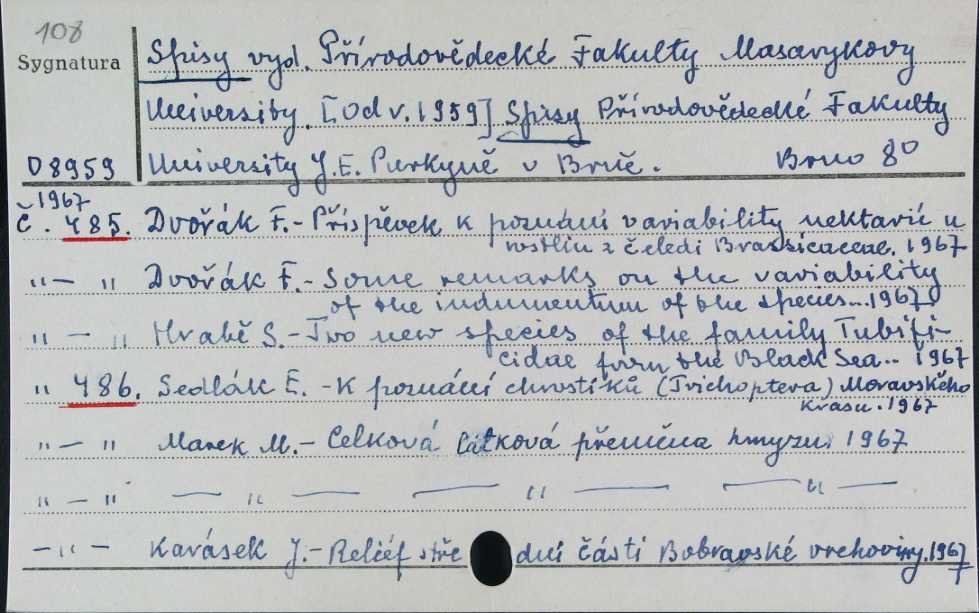 108
Sygnatura
Spisy vyd. Přírodovědecké Fakulty Masarykovy
University. [Od v. 1959] Spisy Přírodovědecké Fakulty
D8959 University J.E. Purkyně v Brně. Brno 8°
1967
č. 485. Dvořák F.- Příspěvek k poznání variability nektarií u
rostlin z čeledi Brassicaceae. 1967
"— " Dvořák F.- Some remarks on the variability
of the indumentum of the species...1967
" — " Hrabě S.- Two new species of the family Tubifi-
cidae form the Black Sea.. 1967
" 486. Sedlák E. - K poznání chrostíků (Trichoptera) Moravského
Krasu. 1967
"— " Marek M.- Celková látková přeměna hmyzu. 1967
" — " — " — — " — — " —
—"— Karásek J.- Reliéf stře dní části Bobravské vrchoviny. 1967